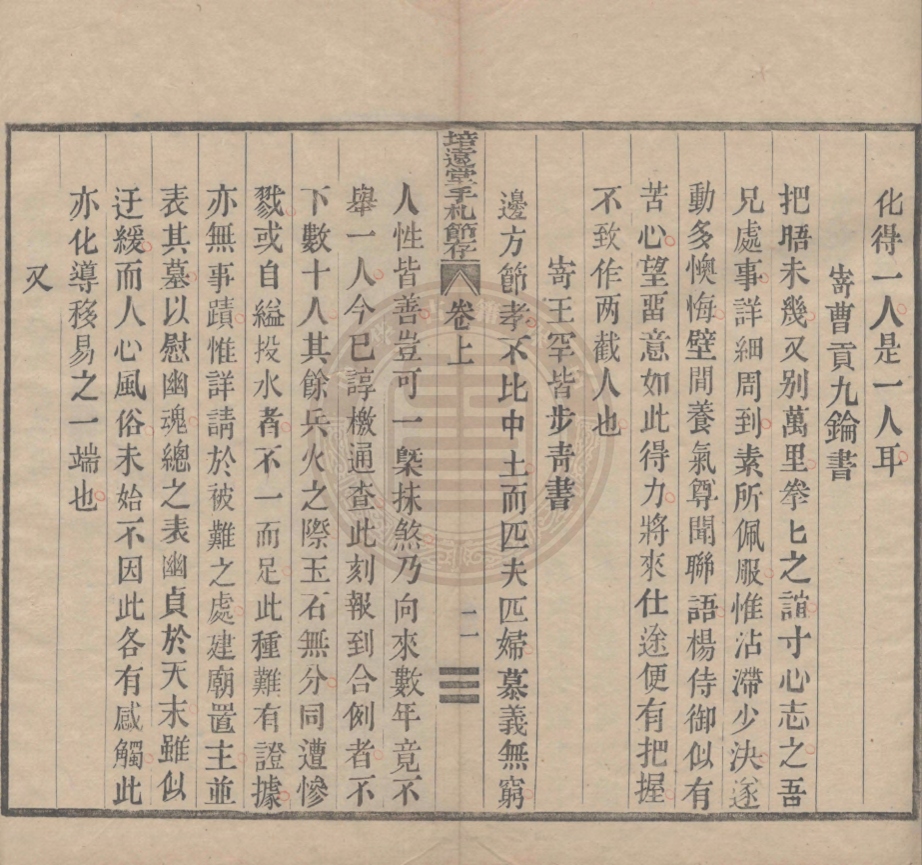 化得一人是一人耳
寄曹貢九錀書
把晤未幾又别萬里拳匕之誼寸心志之吾
兄處事詳細周到素所佩服惟沾滯少決遂
動多懊悔壁間養氣尊聞聯語楊侍御似有
苦心望留意如此得力將來仕途便有把握
不致作两截人也
寄王罕皆步青書
邊方節孝不比中土而匹夫匹婦慕義無窮
培遠堂手札節存
卷上
二
人性皆善豈可一槩抹煞乃向來數年竟不
舉一人今已諄檄通查此刻報到合例者不
下數十人其餘兵火之際玉石無分同遭慘
戮或自縊投水者不一而足此種難有證據
亦無事蹟惟詳請於被難之處建廟置主並
表其墓以慰幽魂總之表幽貞於天末雖似
迂緩而人心風俗未始不因此各有感觸此
亦化導移易之一端也
又